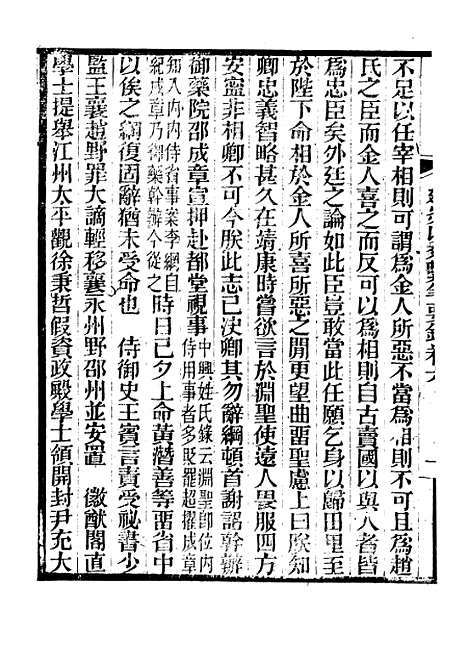 不足以任宰相則可謂爲金人所惡不當爲相則不可且爲趙
氏之臣而金人喜之而反可以爲相則自古賣國以與人者皆
爲忠臣矣外廷之論如此臣豈敢當此任願乞身以歸田里至
於陛下命相於金人所喜所惡之閒更望曲畱聖慮上曰朕知
卿忠義智略甚久在靖康時嘗欲言於淵聖使遠人畏服四方
安寧非相卿不可今朕此志已決卿其勿辭綱頓首謝詔幹辦
御藥院邵成章宣押赴都堂視事中興姓氏錄云淵聖卽位內
侍用事者多貶罷超擢成章
知入內內侍省事案李綱自
紀成章乃御藥幹辦今從之時日已夕上命黃潛善等畱省中
以俟之綱復固辭猶未受命也 侍御史王賓言責受祕書少
監王襄趙野罪大謫輕移襄永州野邵州並安置 徽猷閣直
學士提舉江州太平觀徐秉哲假資政殿學士領開封尹充大